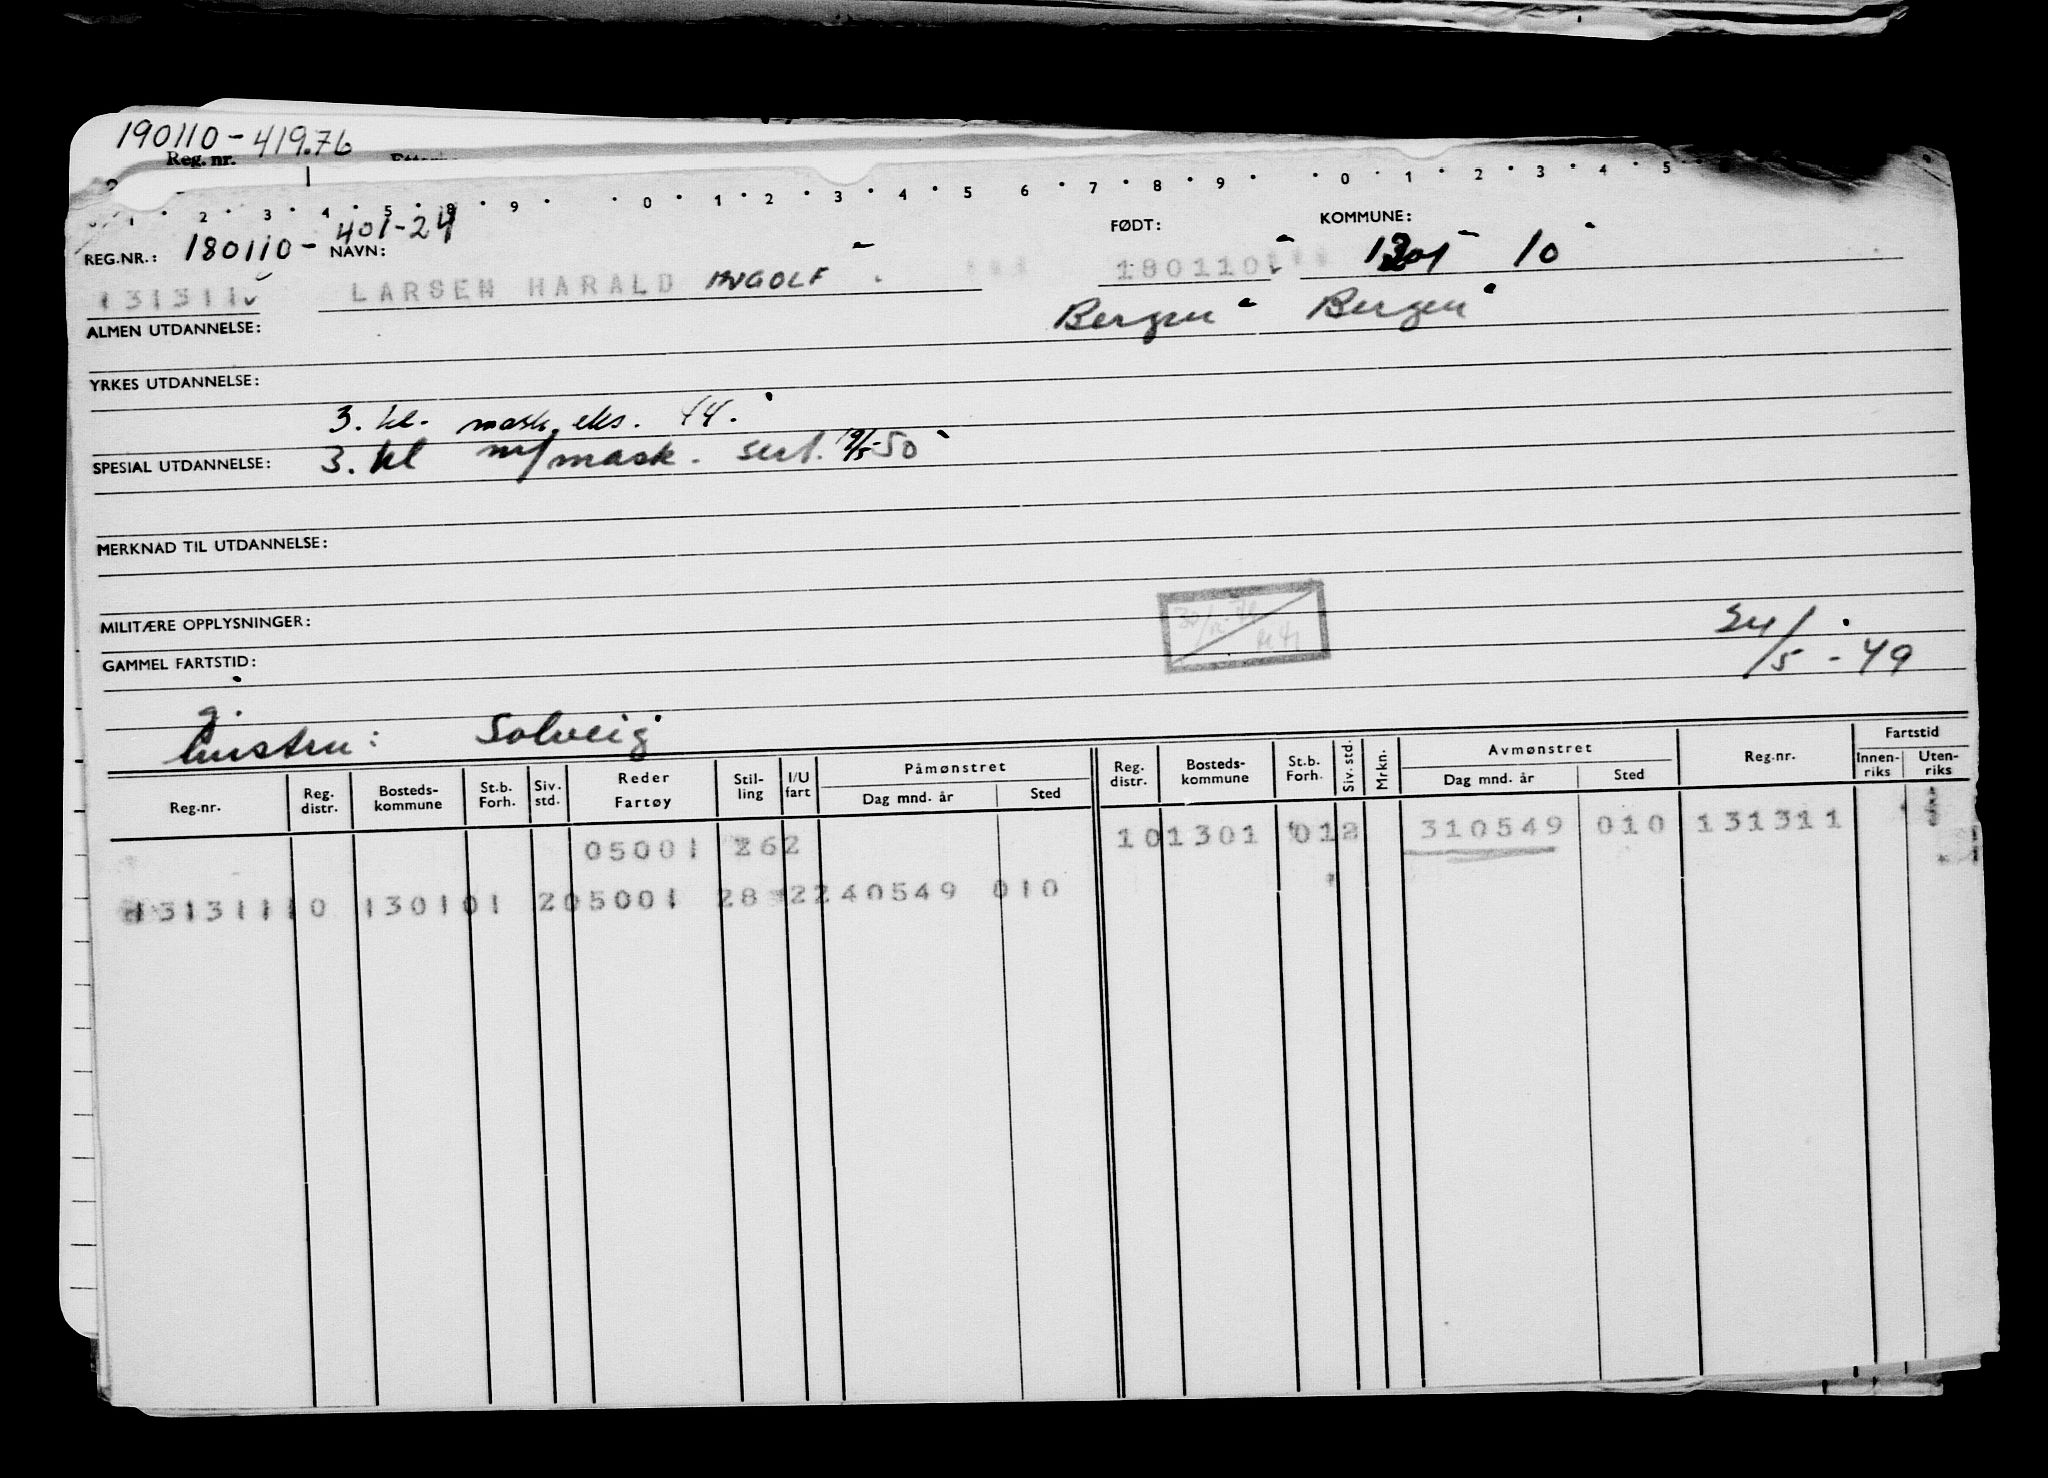 190110-419.76
Reg. nr.
1 · 2 · 3 · 4 · 5 · 8 · 9 · · 0 · 1 · 2 · 3 · 4 · 5 6 · 7 · 8 · 9 · · 0 · 1 · 2 · 3 · 4 · 5
REG.NR.: 180110-401-24 NAVN: FØDT: KOMMUNE: 1301 10
131311 LARSEN HARALD INGOLF 180110
ALMEN UTDANNELSE: Bergen Bergen
YRKES UTDANNELSE:
3. kl. mask. eks. 44.
SPESIAL UTDANNELSE: 3. kl m/mask. sert. 19/5-50
MERKNAD TIL UTDANNELSE:
MILITÆRE OPPLYSNINGER:
GAMMEL FARTSTID: 24/5-49
g.
hustru: Solveig
Reg.nr. Reg. distr. Bosteds-kommune St.b. Forh. Siv. std. Reder Fartøy Stil-ling I/U fart Påmønstret Dag mnd. år Sted Reg. distr. Bosteds-kommune St.b. Forh. Siv. std. Mrkn. Avmønstret Dag mnd. år Sted Reg.nr. Fartstid Innen-riks Uten-riks
05001 262 101301 012 310549 010 131311
131311 10 1301 01 2 05001 28 2 240549 010